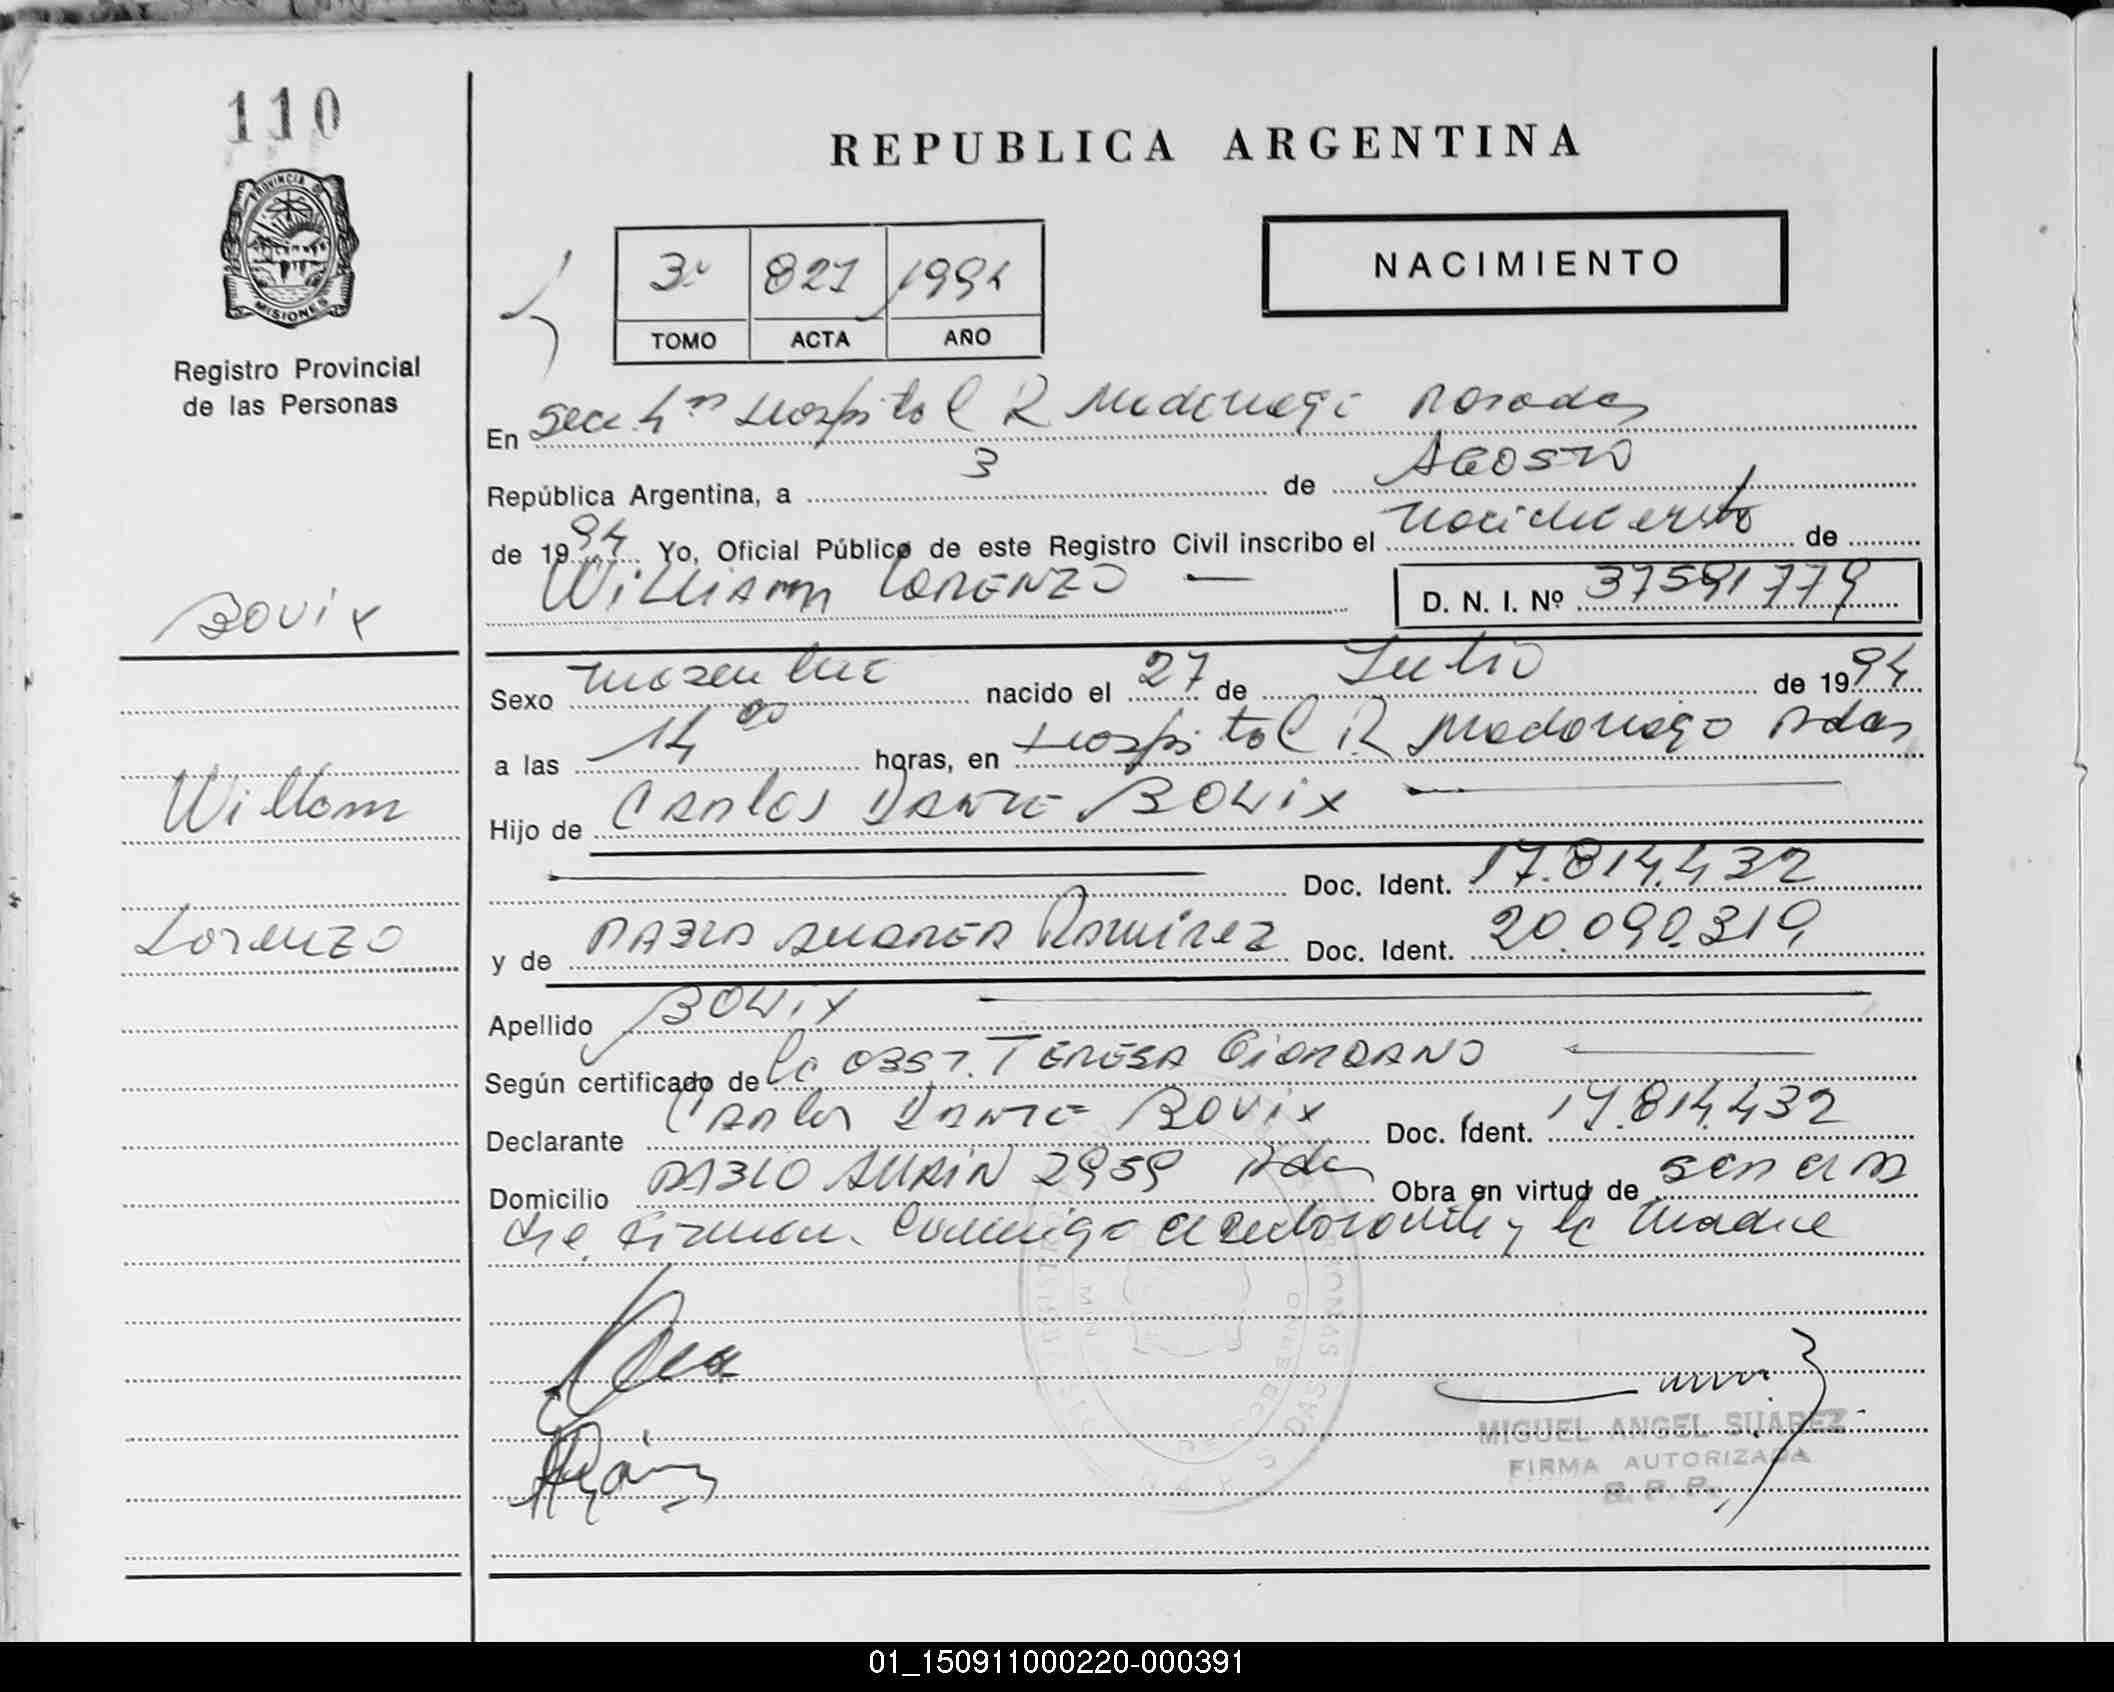 110
REPUBLICA ARGENTINA
PROVINCIA DE
MISIONES
Registro Provincial
de las Personas
3º 821 1994
TOMO ACTA AÑO
NACIMIENTO
En Secc. 4ta Hospital R Madariaga Posadas
República Argentina, a 3 de AGOSTO
de 1994 Yo, Oficial Público de este Registro Civil inscribo el nacimiento de
WILLIAM LORENZO —
D. N. I. Nº 37591779
BOVIX
William
Lorenzo
Sexo masculino nacido el 27 de Julio de 1994
a las 14 00 horas, en Hospital R Madariaga Pdas
Hijo de Carlos Dante BOVIX —
— Doc. Ident. 17.814.432
y de Ramirez Doc. Ident. 20.090.319
Apellido BOVIX —
Según certificado de la OBST. TERESA GIORDANO —
Declarante Carlos Dante BOVIX Doc. Ident. 17.814.432
Domicilio PABLO 2959 Pdas Obra en virtud de ser el P
dre. Firman conmigo el declarante y la madre
MIGUEL ANGEL SUAREZ
FIRMA AUTORIZADA
R. P. P.
01_150911000220-000391